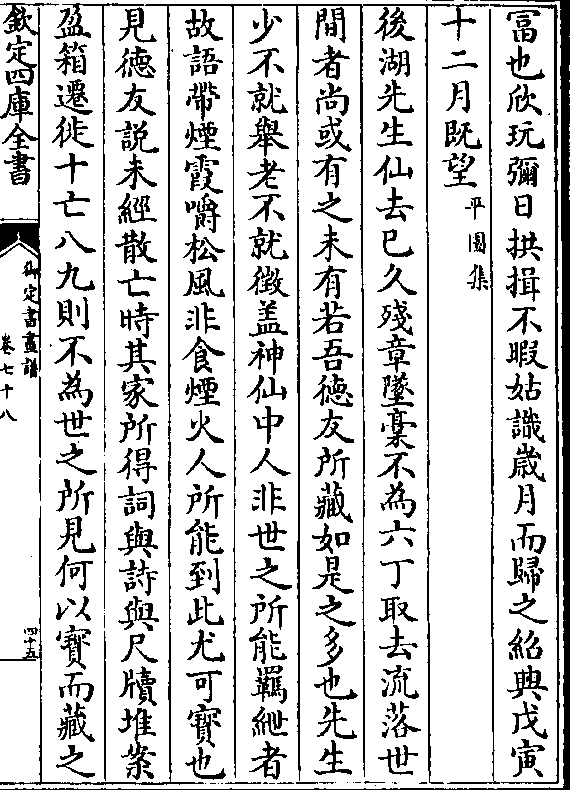 富也欣玩彌日拱揖不暇姑識歲月而歸之紹興戊寅
十二月既望平園集
後湖先生仙去已久殘章墜稾不為六丁取去流落世
間者尚或有之未有若吾德友所藏如是之多也先生
少不就舉老不就徵盖神仙中人非世之所能羈紲者
故語帶煙霞嚼松風非食煙火人所能到此尤可寶也
見德友說未經散亡時其家所得詞與詩與尺牘堆案
盈箱遷徙十亡八九則不為世之所見何以寶而藏之
欽定四庫全書
御定書畫譜
卷七十八
四十五